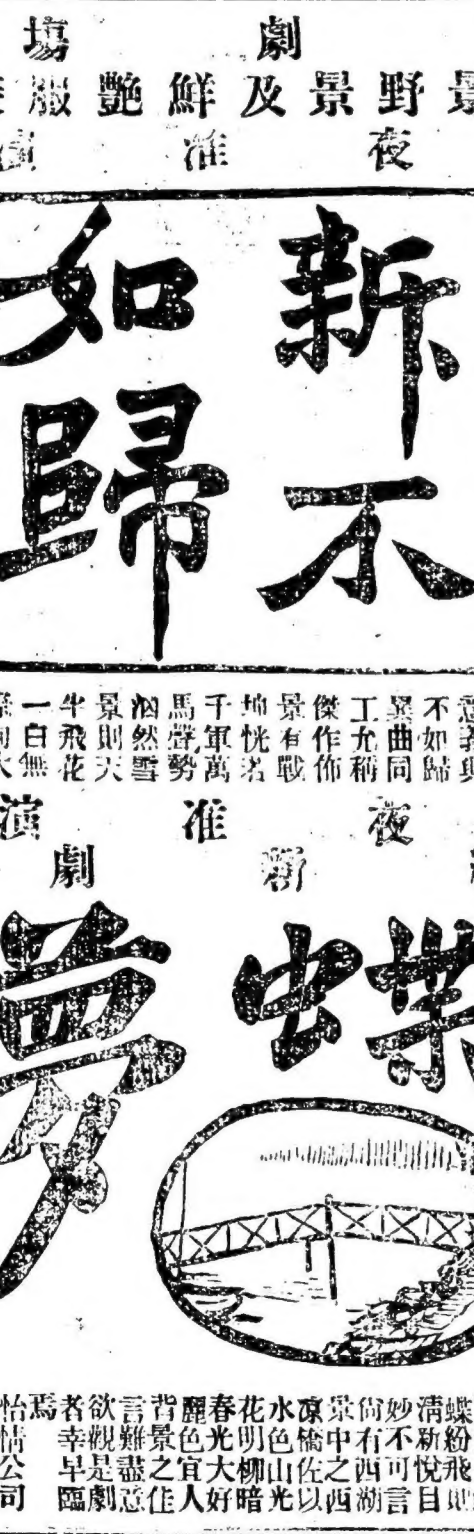 劇場
景野景及鮮艷服
夜准演
新不
如歸
意義與
不如歸
異曲同
工允稱
傑作佈
景有戰
地恍若
千軍萬
馬聲勢
洶然雪
景則天
半飛花
一白無
夜准演
新劇
蝶夢
蝶紛飛則
清新悅目
妙不可言
尚有西湖
景中之西
凉橋佐以
水色山光
花明柳暗
春光大好
麗色宜人
背景之佳
言難盡意
欲觀是劇
者幸早臨
焉
怡情公司